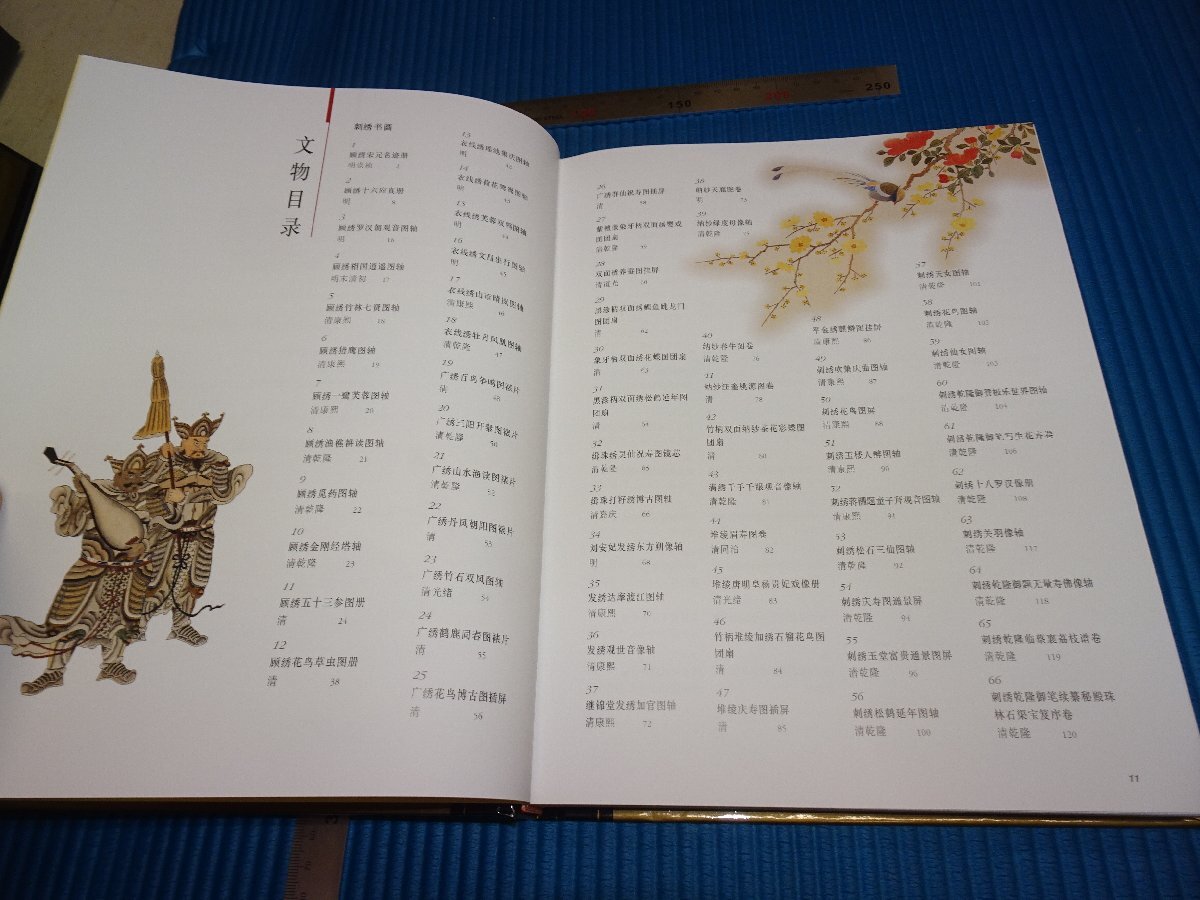 文物目录
刺绣书画
1
顾绣宋元名迹册
2
顾绣十六应真册
明 8
3
顾绣罗汉朝观音图轴
明 16
4
明末清初 17
5
顾绣竹林七贤图轴
清康熙 18
6
顾绣猎鹰图轴
清康熙 19
7
顾绣一鹭芙蓉图轴
清康熙 20
8
顾绣渔樵耕读图轴
清乾隆 21
9
顾绣觅药图轴
清乾隆 22
10
顾绣金刚经塔轴
清乾隆 23
11
顾绣五十三参图册
清 24
12
顾绣花鸟草虫图册
清 38
13
明
14
明
15
衣线绣芙蓉双鸭图轴
明 44
16
衣线绣文昌出行图轴
明 45
17
清康熙 46
18
衣线绣牡丹凤凰图轴
清乾隆 47
19
广绣百鸟争鸣图裱片
清 48
20
广绣三阳开泰图裱片
清乾隆 50
21
广绣山水渔读图裱片
清乾隆 52
22
广绣丹凤朝阳图裱片
清 53
23
广绣竹石双凤图轴
清光绪 54
24
清 55
25
广绣花鸟博古图插屏
清 56
26
广绣群仙祝寿图插屏
清 58
27
清乾隆
28
清道光
29
清 62
30
象牙柄双面绣花蝶图团扇
清 63
31
黑漆柄双面绣松鹤延年图
团扇
清 64
32
清乾隆 65
33
缉珠打籽绣博古图轴
清嘉庆 66
34
刘安妃发绣东方朔像轴
明 68
35
发绣达摩渡江图轴
清康熙 70
36
发绣观世音像轴
清康熙 71
37
继锦堂发绣加官图轴
清康熙 72
38
明 73
39
纳纱绿度母像轴
清乾隆 75
40
纳纱春牛图卷
清乾隆 76
41
清 78
42
竹柄双面纳纱茶花彩蝶图
团扇
清 80
43
满绣千手千眼观音像轴
清乾隆 81
44
清同治 82
45
堆绫唐明皇杨贵妃戏像册
清光绪 83
46
竹柄堆绫加绣石榴花鸟图
团扇
清 84
47
堆绫庆寿图插屏
清 85
48
平金绣麒麟图挂屏
清康熙 86
49
清康熙 87
50
刺绣花鸟图屏
清康熙 88
51
刺绣玉楼人醉图轴
清康熙 90
52
清康熙 91
53
刺绣松石三仙图轴
清乾隆 92
54
刺绣庆寿图通景屏
清乾隆 94
55
刺绣玉堂富贵通景图屏
清乾隆 96
56
刺绣松鹤延年图轴
清乾隆 100
57
刺绣天女图轴
清乾隆 101
58
刺绣花鸟图轴
清乾隆 102
59
刺绣仙女图轴
清乾隆 103
60
刺绣乾隆御赞极乐世界图轴
清乾隆 104
61
清乾隆 106
62
刺绣十八罗汉像册
清乾隆 108
63
刺绣关羽像轴
清乾隆 117
64
刺绣乾隆御题无量寿佛像轴
清乾隆 118
65
刺绣乾隆临蔡襄荔枝谱卷
清乾隆 119
66
刺绣乾隆御笔续纂秘殿珠
林石渠宝笈序卷
清乾隆 120
11
150
200
250